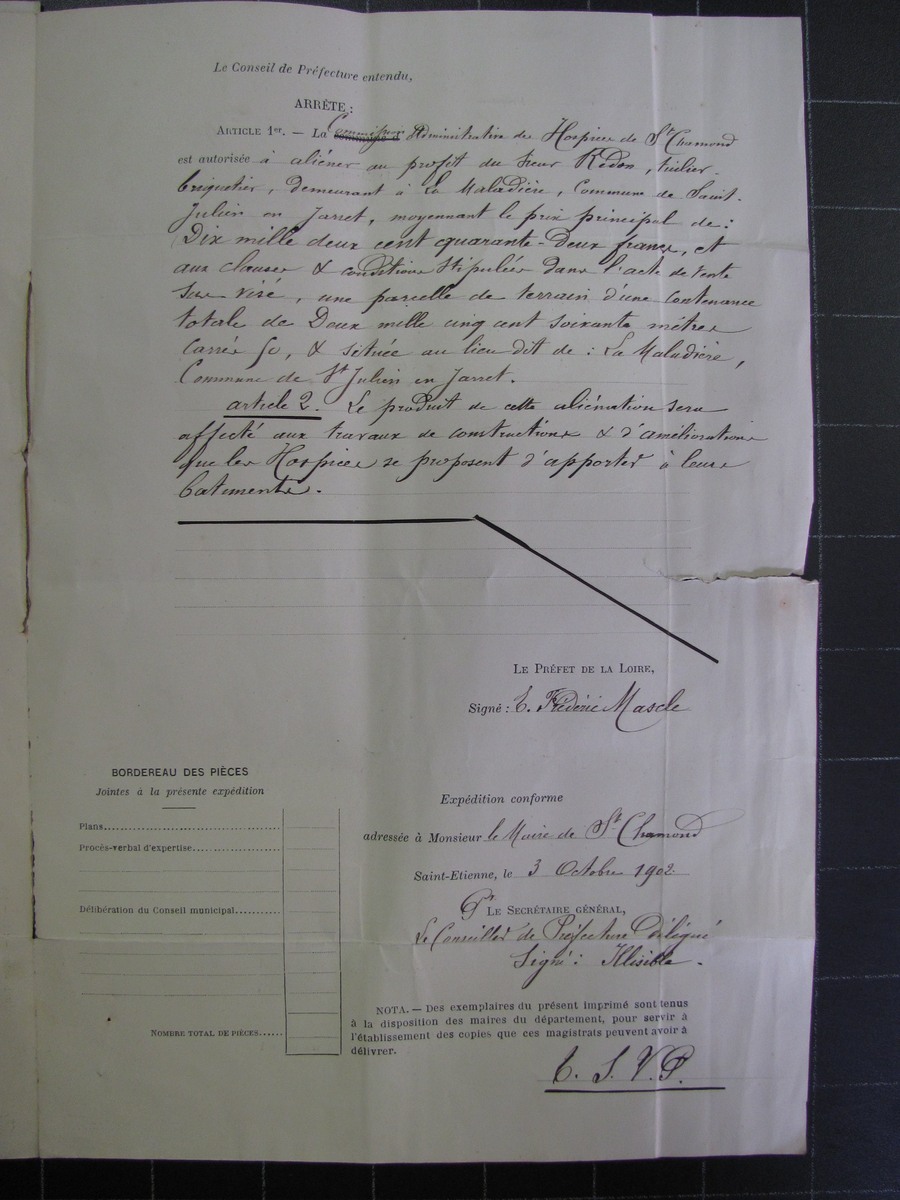 Le Conseil de Préfecture entendu,
ARRÊTE :
ARTICLE 1er. — La Commission Administrative des Hospices de St Chamond
est autorisée à aliéner au profit du Sieur Redon, tuilier-
briquetier, demeurant à La Maladière, Commune de Saint-
Julien en Jarret, moyennant le prix principal de :
Dix mille deux cent quarante-Deux francs, et
aux clauses & conditions Stipulées dans l'acte de vente
Sus visé, une parcelle de terrain d'une Contenance
totale de Deux mille cinq cent soixante mètres
Carrés 50, & située au lieu dit de : La Maladière,
Commune de St Julien en Jarret.
article 2. Le produit de cette aliénation sera
affecté aux travaux de constructions & d'améliorations
que les Hospices se proposent d'apporter à leurs
batiments.
LE PRÉFET DE LA LOIRE,
Signé : E. Frédéric Mascle
BORDEREAU DES PIÈCES
Jointes à la présente expédition
Plans
Procès-verbal d'expertise
Délibération du Conseil municipal
NOMBRE TOTAL DE PIÈCES
Expédition conforme
adressée à Monsieur le Maire de St Chamond
Saint-Etienne, le 3 Octobre 1902
Pr LE SECRÉTAIRE GÉNÉRAL,
Le Conseiller de Préfecture Délégué
Signé : Illisible.
NOTA. — Des exemplaires du présent imprimé sont tenus
à la disposition des maires du département, pour servir à
l'établissement des copies que ces magistrats peuvent avoir à
délivrer.
T. S. V. P.